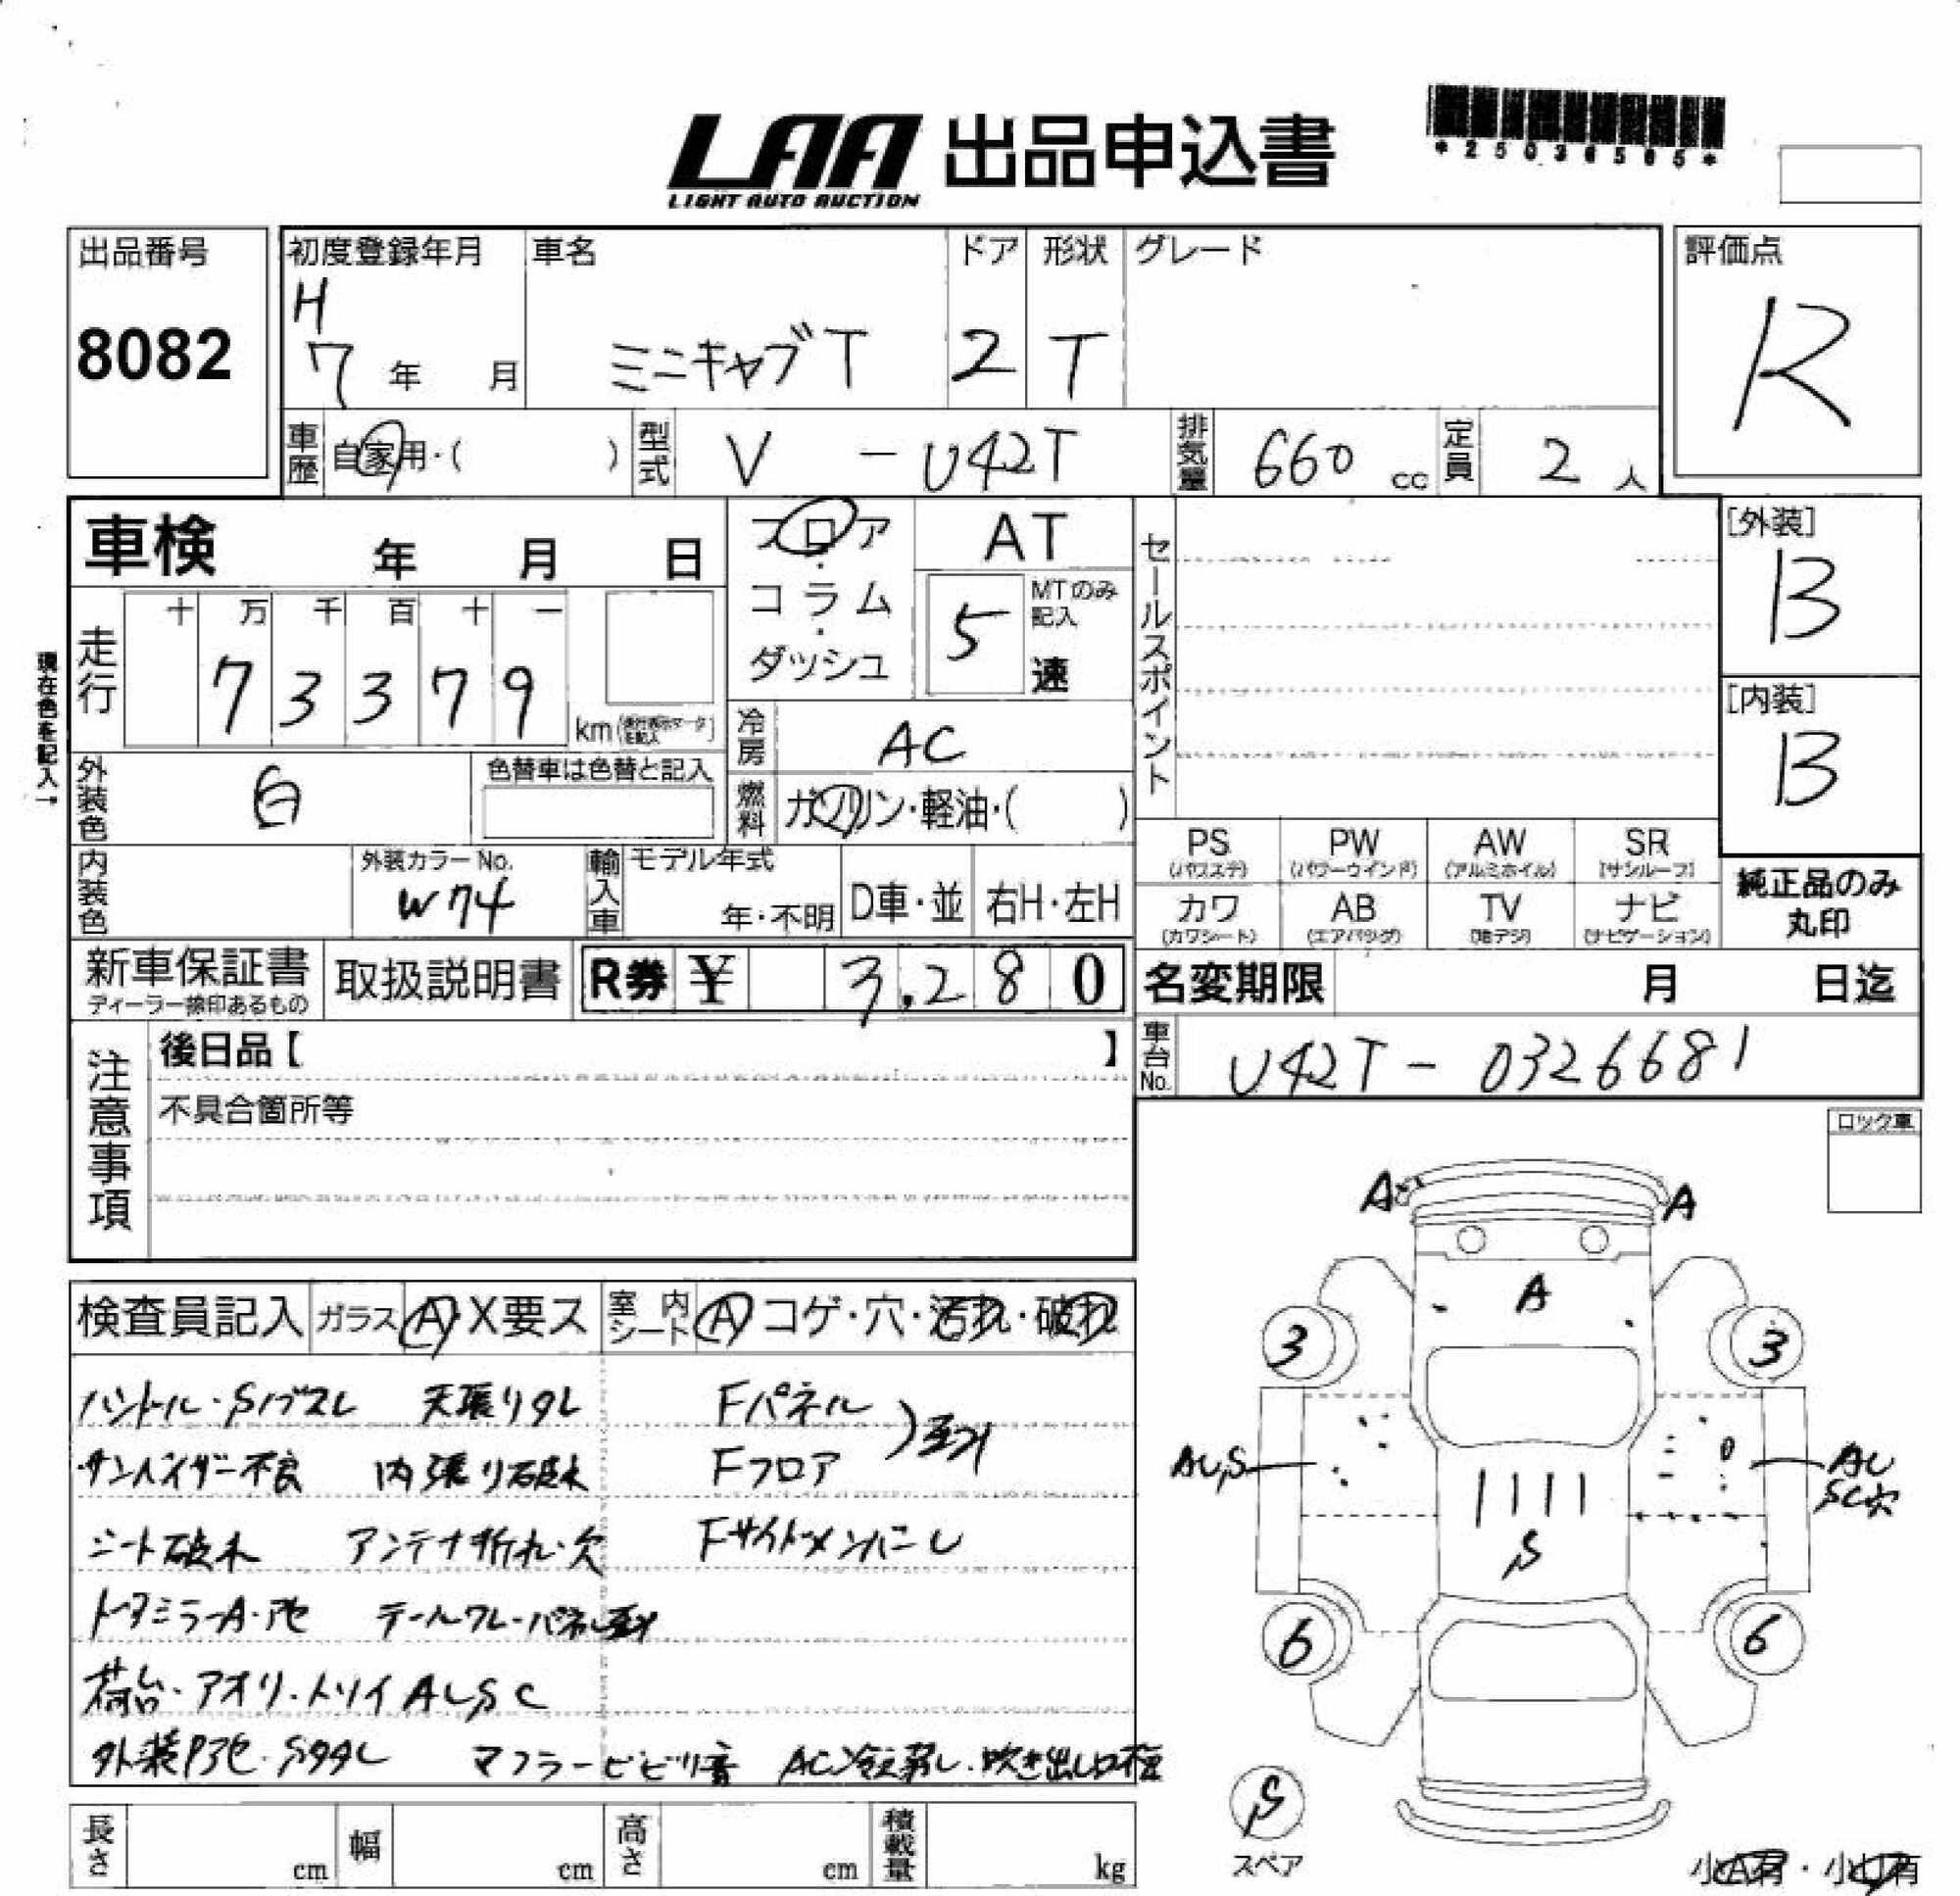 LAA 出品申込書
LIGHT AUTO AUCTION
*25036505*
出品番号
8082
初度登録年月
H
7年 月
車名
ミニキャブT
ドア
2
形状
T
グレード
評価点
R
車歴
自家用・( )
型式
V - U42T
排気量
660 cc
定員
2 人
車検 年 月 日
フロア・コラム・ダッシュ
AT
5
MTのみ記入
速
セールスポイント
[外装]
B
[内装]
B
現在色を記入→
走行
十 万 千 百 十 一
7 3 3 7 9
km
冷房
AC
外装色
白
色替車は色替と記入
燃料
ガソリン・軽油・( )
PS (パワステ)
PW (パワーウインド)
AW (アルミホイル)
SR (サンルーフ)
カワ (カワシート)
AB (エアバッグ)
TV (地デジ)
ナビ (ナビゲーション)
純正品のみ
丸印
内装色
外装カラーNo.
W74
輸入車
モデル年式
年・不明
D車・並
右H・左H
新車保証書
ディーラー捺印あるもの
取扱説明書
R券 ¥ 3,280
名変期限 月 日迄
車台No.
U42T-0326681
注意事項
後日品【 】
不具合箇所等
ロック車
検査員記入
ガラス
A・X要ス
室内シート
A コゲ・穴・汚れ・破れ
ハンドル・Sノブスレ 天張りタレ Fパネル
サンバイザー不良 内張り破れ Fフロア
シート破れ アンテナ折れ・欠 Fサイドメンバー
荷台・アオリ・トリイ
マフラービビリ音
A
A
A
3
3
AU,S
AU
SC穴
S
6
6
S
スペア
長さ cm
幅 cm
高さ cm
積載量 kg
小A有・小U有